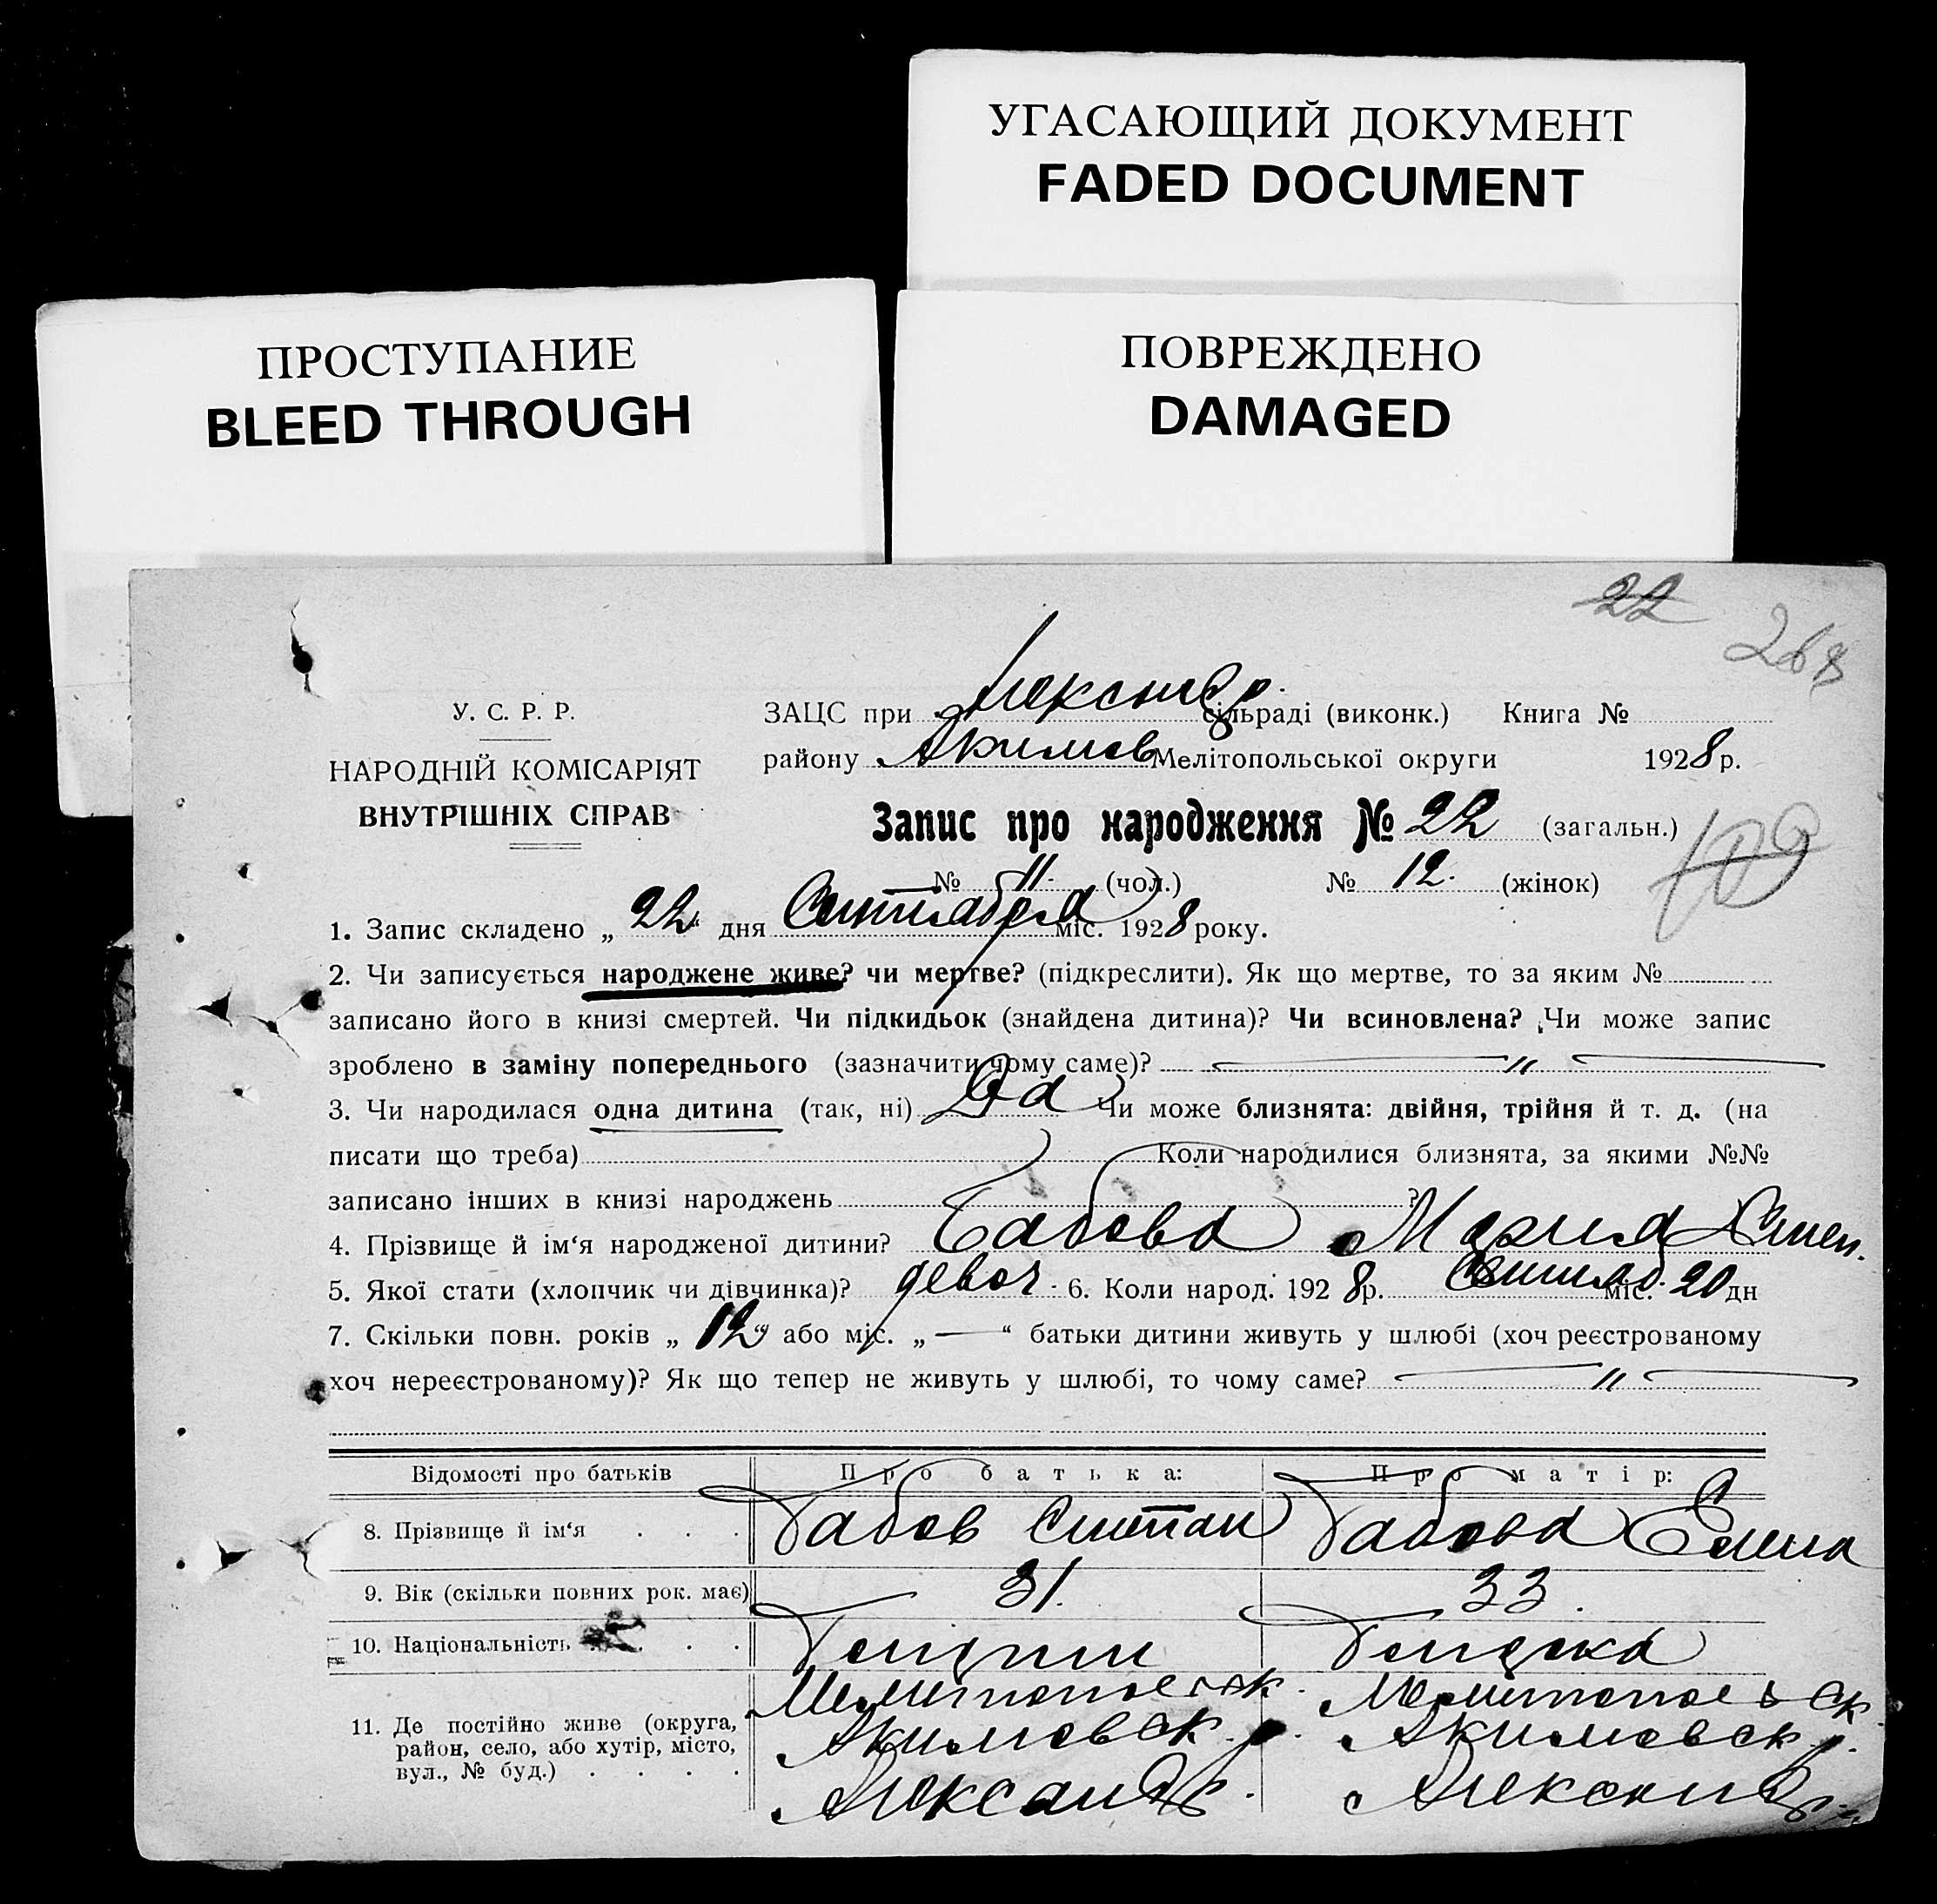 УГАСАЮЩИЙ ДОКУМЕНТ
FADED DOCUMENT
ПРОСТУПАНИЕ
BLEED THROUGH
ПОВРЕЖДЕНО
DAMAGED
22
У. С. Р. Р.
НАРОДНІЙ КОМІСАРІЯТ
ВНУТРІШНІХ СПРАВ
ЗАЦС при Александр. сільраді (виконк.) Книга №
району Акимов Мелітопольської округи 1928 р.
Запис про народження № 22 (загальн.)
№ 11 (чол.) № 12. (жінок)
1. Запис складено „ 22 “ дня Сентлабра міс. 1928 року.
2. Чи записується народжене живе? чи мертве? (підкреслити). Як що мертве, то за яким №
записано його в книзі смертей. Чи підкидьок (знайдена дитина)? Чи всиновлена? Чи може запис
зроблено в заміну попереднього (зазначити чому саме)? — „ —
3. Чи народилася одна дитина (так, ні) Да Чи може близнята: двійня, трійня й т. д. (на
писати що треба) Коли народилися близнята, за якими №№
записано інших в книзі народжень ?
4. Прізвище й ім‘я народженої дитини? Бабова Мария Степ.
5. Якої стати (хлопчик чи дівчинка)? девоч 6. Коли народ. 1928 р. Сентяб. міс. 20 дн
7. Скільки повн. років „ 12 “ або міс. „ — “ батьки дитини живуть у шлюбі (хоч реєстрованому
хоч нереєстрованому)? Як що тепер не живуть у шлюбі, то чому саме? — „ —
Відомості про батьків Про батька: Про матір:
8. Прізвище й ім‘я . . . Бабов Степан Бабова Елена
9. Вік (скільки повних рок. має) 31. 33.
10. Національність . . . Болгарин Болгарка
11. Де постійно живе (округа, район, село, або хутір, місто, вул., № буд.) . . . .
Мелитопольск. Мелитопольск
Акимовск. р. Акимовск. р.
Александр. Александр.